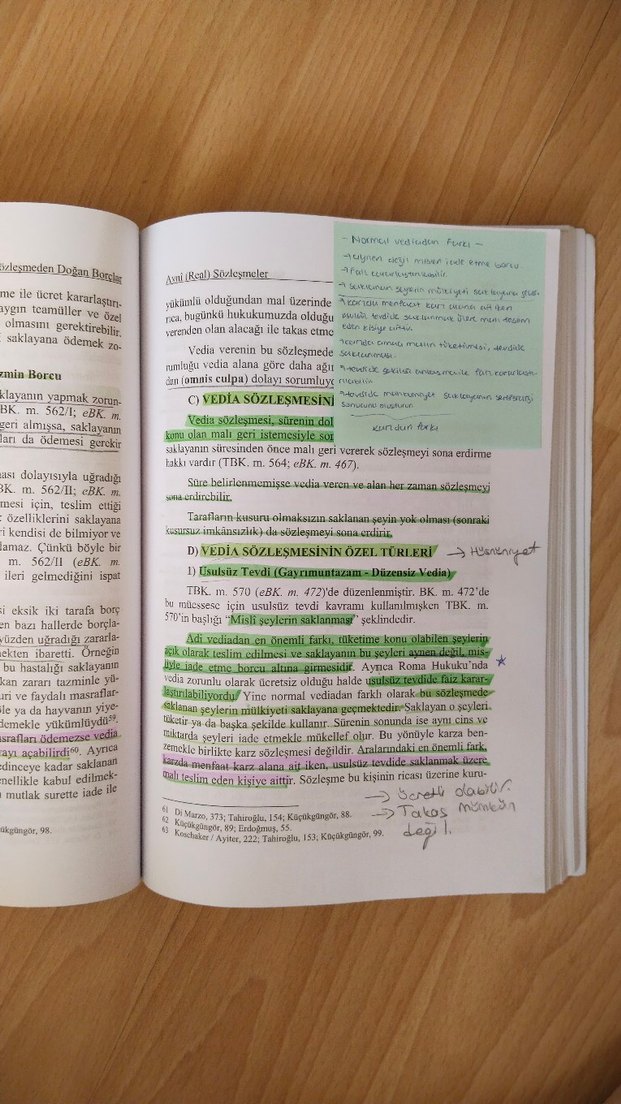 özleşmeden Doğan Borçlar
me ile ücret kararlaştırı-
aygın teamüller ve özel
olmasını gerektirebilir.
i saklayana ödemek zo-
zmin Borcu
klayanın yapmak zorun-
BK. m. 562/I; eBK. m.
geri almışsa, saklayanın
ları da ödemesi gerekir
ası dolayısıyla uğradığı
BK. m. 562/II; eBK. m.
mesi için, teslim ettiği
k özelliklerini saklayana
eri kendisi de bilmiyor ve
lamaz. Çünkü böyle bir
m. 562/II (eBK. m.
ileri gelmediğini ispat
si eksik iki tarafa borç
en bazı hallerde borçla-
yüzden uğradığı zararla-
ekten ibaretti. Örneğin
bu hastalığı saklayanın
kan zararı tazminle yü-
uri ve faydalı masraflar-
öyle ya da hayvanın yiye-
demekle yükümlüydü59.
asrafları ödemezse vedia
rayı açabilirdi60. Ayrıca
edinceye kadar saklanan
enellikle kabul edilmek-
n mutlak surette iade ile
küçükgüngör, 98.
Ayni (Real) Sözleşmeler
yükümlü olduğundan mal üzerinde
rıca, bugünkü hukukumuzda olduğu
verenden olan alacağı ile takas etme
Vedia verenin bu sözleşmede
rumluğu vedia alana göre daha ağır
dan (omnis culpa) dolayı sorumluy
C) VEDİA SÖZLEŞMESİNİ
Vedia sözleşmesi, sürenin dol
konu olan malı geri istemesiyle so
saklayanın süresinden önce malı geri vererek sözleşmeyi sona erdirme
hakkı vardır (TBK. m. 564; eBK. m. 467).
Süre belirlenmemişse vedia veren ve alan her zaman sözleşmeyi
sona erdirebilir.
Tarafların kusuru olmaksızın saklanan şeyin yok olması (sonraki
kusursuz imkânsızlık) da sözleşmeyi sona erdirir.
D) VEDİA SÖZLEŞMESİNİN ÖZEL TÜRLERİ
→ Hüsnüniyet
1) Usulsüz Tevdi (Gayrımuntazam - Düzensiz Vedia)
TBK. m. 570 (eBK. m. 472)'de düzenlenmiştir. BK. m. 472'de
bu müessese için usulsüz tevdi kavramı kullanılmışken TBK. m.
570'in başlığı "Misli şeylerin saklanması" şeklindedir.
Adi vediadan en önemli farkı, tüketime konu olabilen şeylerin
açık olarak teslim edilmesi ve saklayanın bu şeyleri aynen değil, mis-
liyle iade etme borcu altına girmesidir. Ayrıca Roma Hukuku'nda
vedia zorunlu olarak ücretsiz olduğu halde usulsüz tevdide faiz karar-
laştırılabiliyordu. Yine normal vediadan farklı olarak bu sözleşmede
saklanan şeylerin mülkiyeti saklayana geçmektedir. Saklayan o şeyleri
tüketir ya da başka şekilde kullanır. Sürenin sonunda ise aynı cins ve
miktarda şeyleri iade etmekle mükellef olur. Bu yönüyle karza ben-
zemekle birlikte karz sözleşmesi değildir. Aralarındaki en önemli fark,
karzda menfaat karz alana ait iken, usulsüz tevdide saklanmak üzere
malı teslim eden kişiye aittir. Sözleşme bu kişinin ricası üzerine kuru-
→ Ücretli olabilir.
→ Takas mümkün
değil.
61 Di Marzo, 373; Tahiroğlu, 154; Küçükgüngör, 88.
62 Küçükgüngör, 89; Erdoğmuş, 55.
63 Koschaker / Ayiter, 222; Tahiroğlu, 153; Küçükgüngör, 99.
- Normal vediadan farkı -
→ aynen değil mislen iade etme borcu
→ faiz kararlaştırılabilir.
→ saklanan şeylerin mülkiyeti saklayana
→ karzda menfaat karz alana ait iken
usulsüz tevdide saklanmak üzere malı teslim
eden kişiye aittir.
→ karzda amaç malın tüketilmesi, tevdide
saklanması.
→ tevdide faiz
→ tevdide saklayanın
sonucunu
karzdan farkı